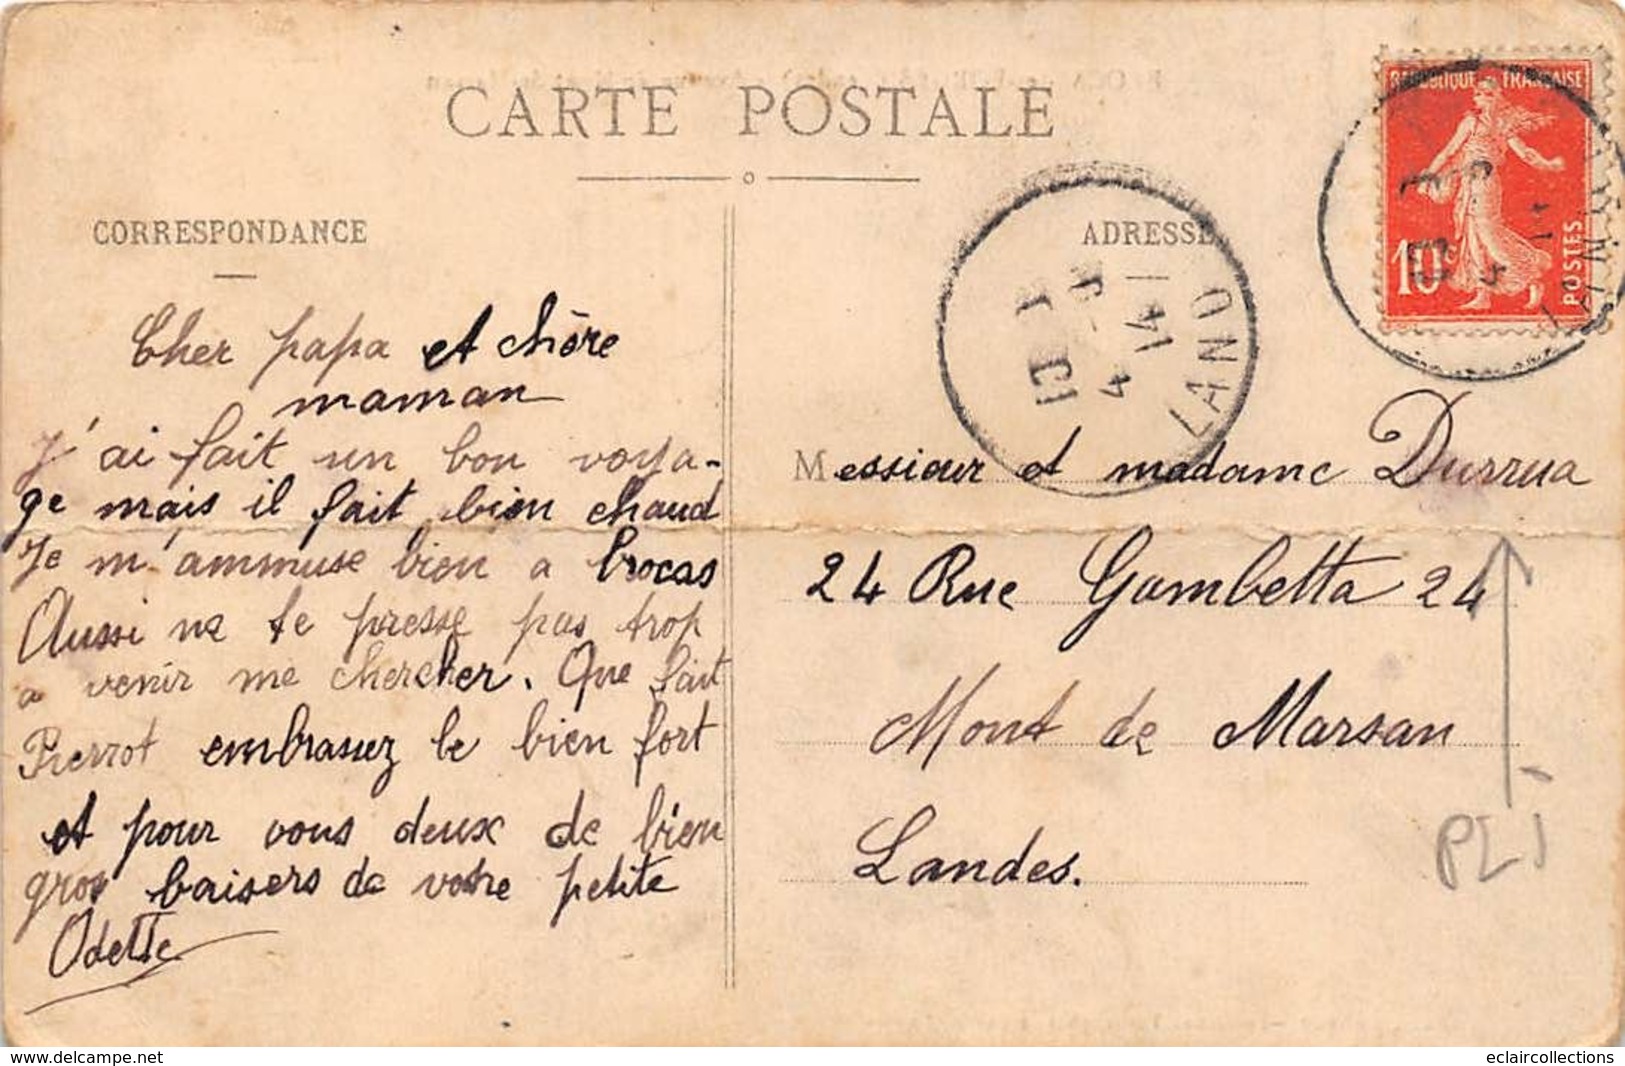 CARTE POSTALE
CORRESPONDANCE
Cher papa et chère
maman
J'ai fait un bon voya-
ge mais il fait bien chaud
Je m'ammuse bien a brocas
Aussi ne te presse pas trop
a venir me chercher. Que fait
Pierrot embrassez le bien fort
et pour vous deux de bien
gros baisers de votre petite
Odette
ADRESSE
Messieur et madame Durrua
24 Rue Gambetta 24
Mont de Marsan
Landes.
REPUBLIQUE FRANÇAISE
10c
POSTES
4 14
LAND
PLI
www.delcampe.net
eclaircollections